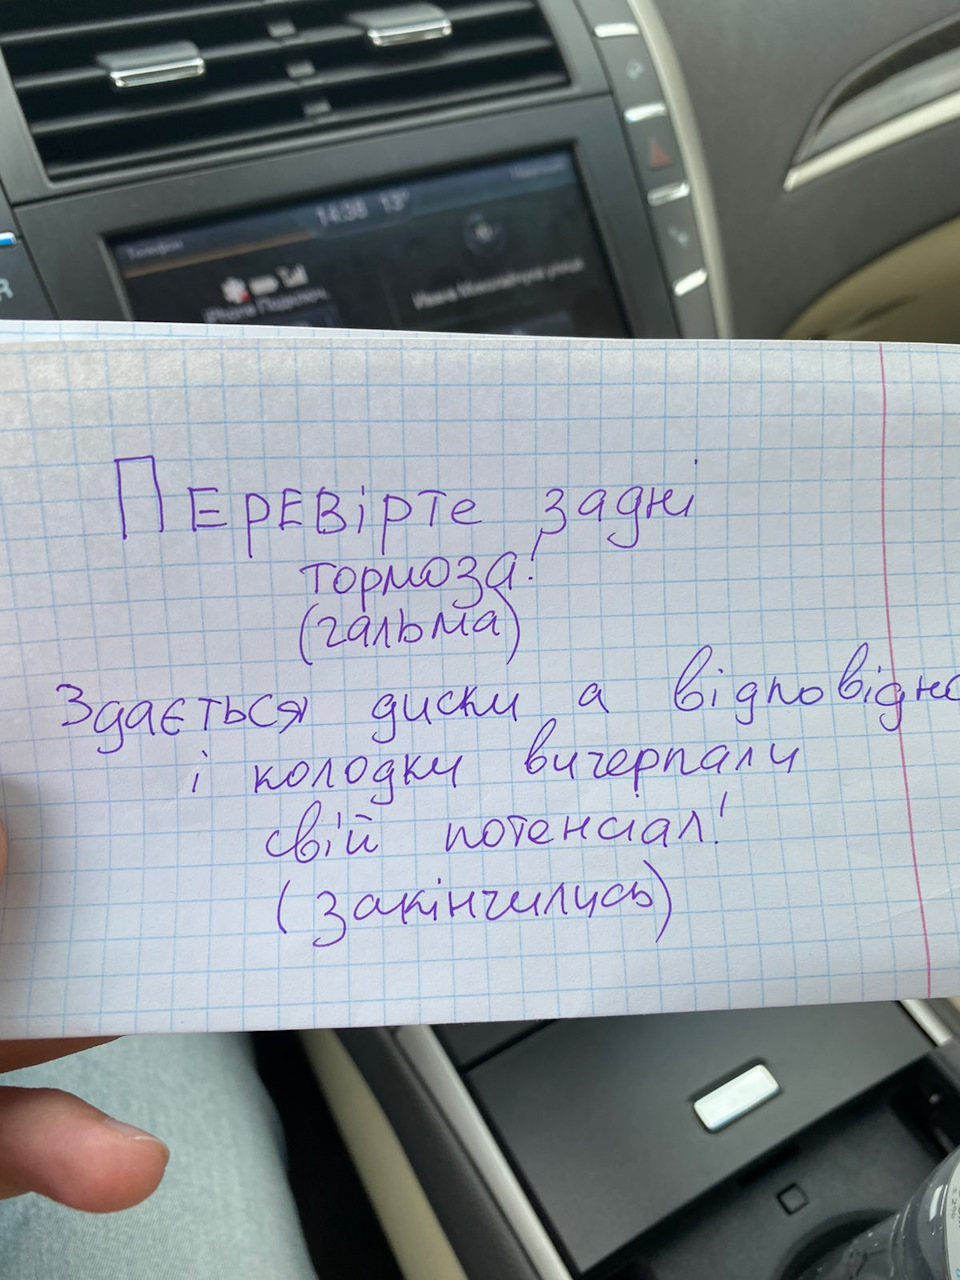 14:38 13°
Телефон
iPhone Подключ.
R
Перевірте задні
тормоза!
(гальма)
Здається диски а відповідно
і колодки вичерпали
свій потенсіал!
(закінчились)